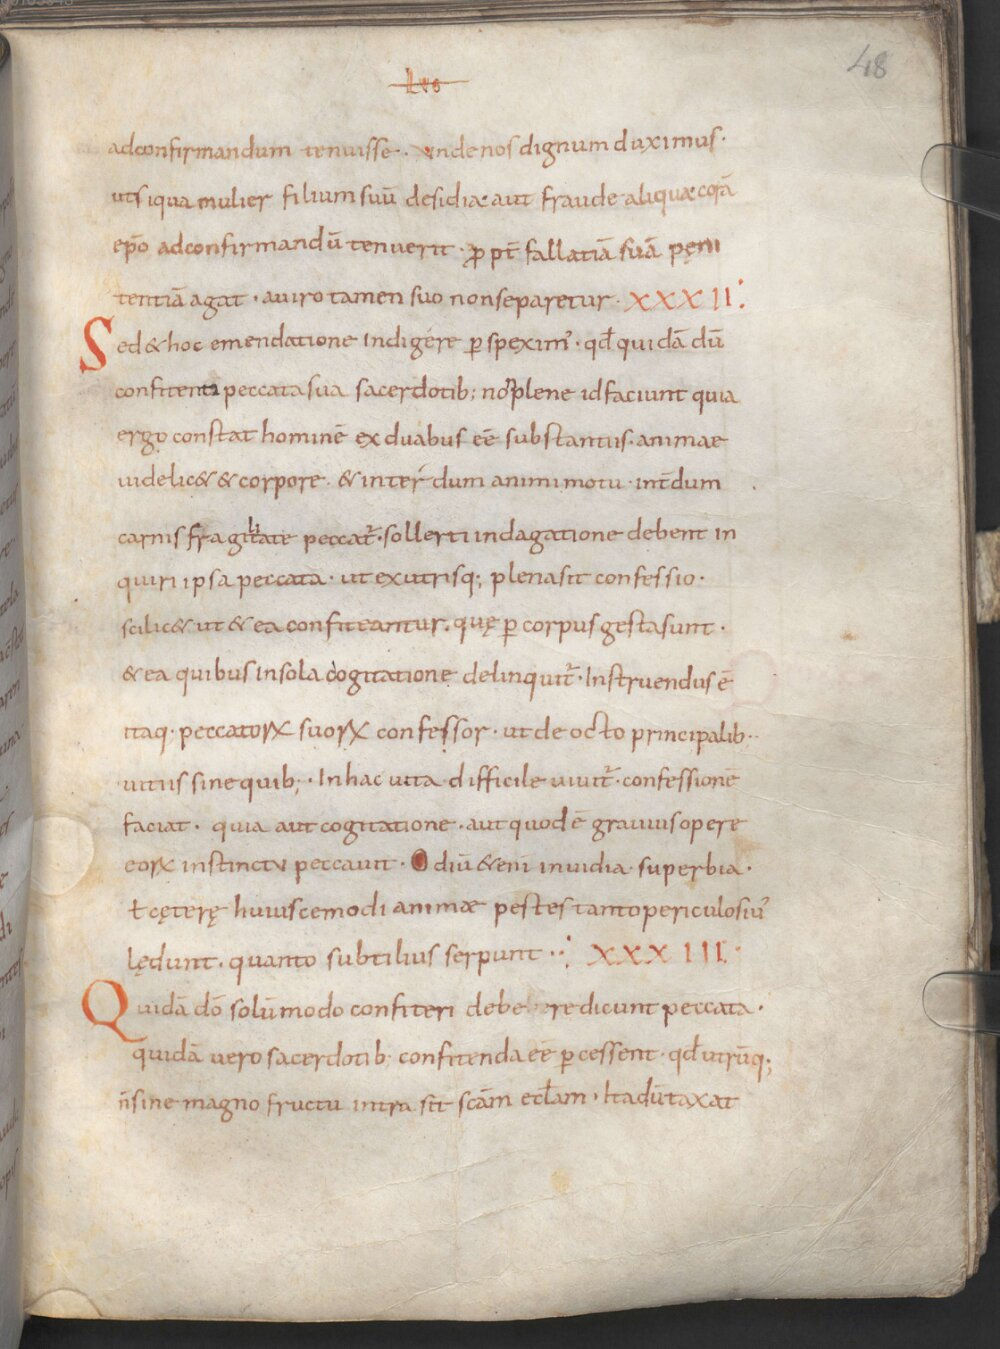 48
adconfirmandum tenuisse. Unde nos dignum duximus.
ut siqua mulier filium suū desidiae aut fraude aliquae corā
ep̄o adconfirmandū tenuerit. ꝓpt̄ fallatiā suā pęni
tentiā agat. auiro tamen suo non separetur. XXXII:
Sed & hoc emendatione indigere ꝑspeximꝰ. qđ quidā dū
confitent peccata sua sacerdotib; no plene id faciunt quia
ergo constat hominē ex duabus eē substantiis. animae
uidelic& & corpore. & interdum animi motu. int̄dum
carnis fragilitate peccat̄. sollerti indagatione debent in
quiri ipsa peccata. ut exutrisq; plena sit confessio.
scilic& ut & ea confiteantur. quę ꝑ corpus gesta sunt.
& ea quibus in sola cogitatione delinquit̄. Instruendus ē
itaq. peccatoꝝ suoꝝ confessor. ut de octo principalib.
uitiis sine quib; . In hac uita difficile uiuit̄. confessionē
faciat. quia aut cogitatione. aut quod ē grauius opere
eoꝝ instinctu peccauit. Odiū &eni inuidia. superbia.
ł cęterę huiuscemodi animae pestes tanto periculosiuꝰ
lędunt. quanto subtilius serpunt. XXXIII.
Quidā dō solūmodo confiteri debere dicunt peccata.
quidā uero sacerdotib. confitenda eē ꝑcessent. qđ utrūq;
n̄ sine magno fructu intra sit scām eccłam. Ita dūtaxat